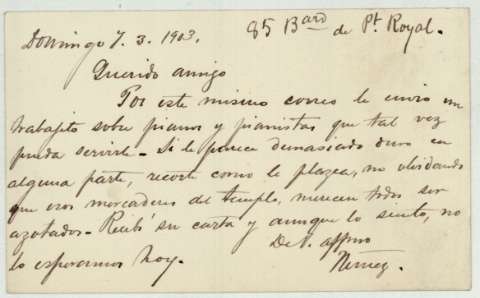 Domingo 7. 3. 1903.
85 Bard de Pt. Royal.
Querido amigo
Por este mismo correo le envio un
trabajito sobre pianos y pianistas que tal vez
pueda servirle - Si le parece demasiado duro en
alguna parte, recorte como le plazca, no olvidando
que esos mercaderes del templo, merecen todos ser
azotados - Recibí su carta y aunque lo siento, no
lo esperamos hoy.
De V. affmo